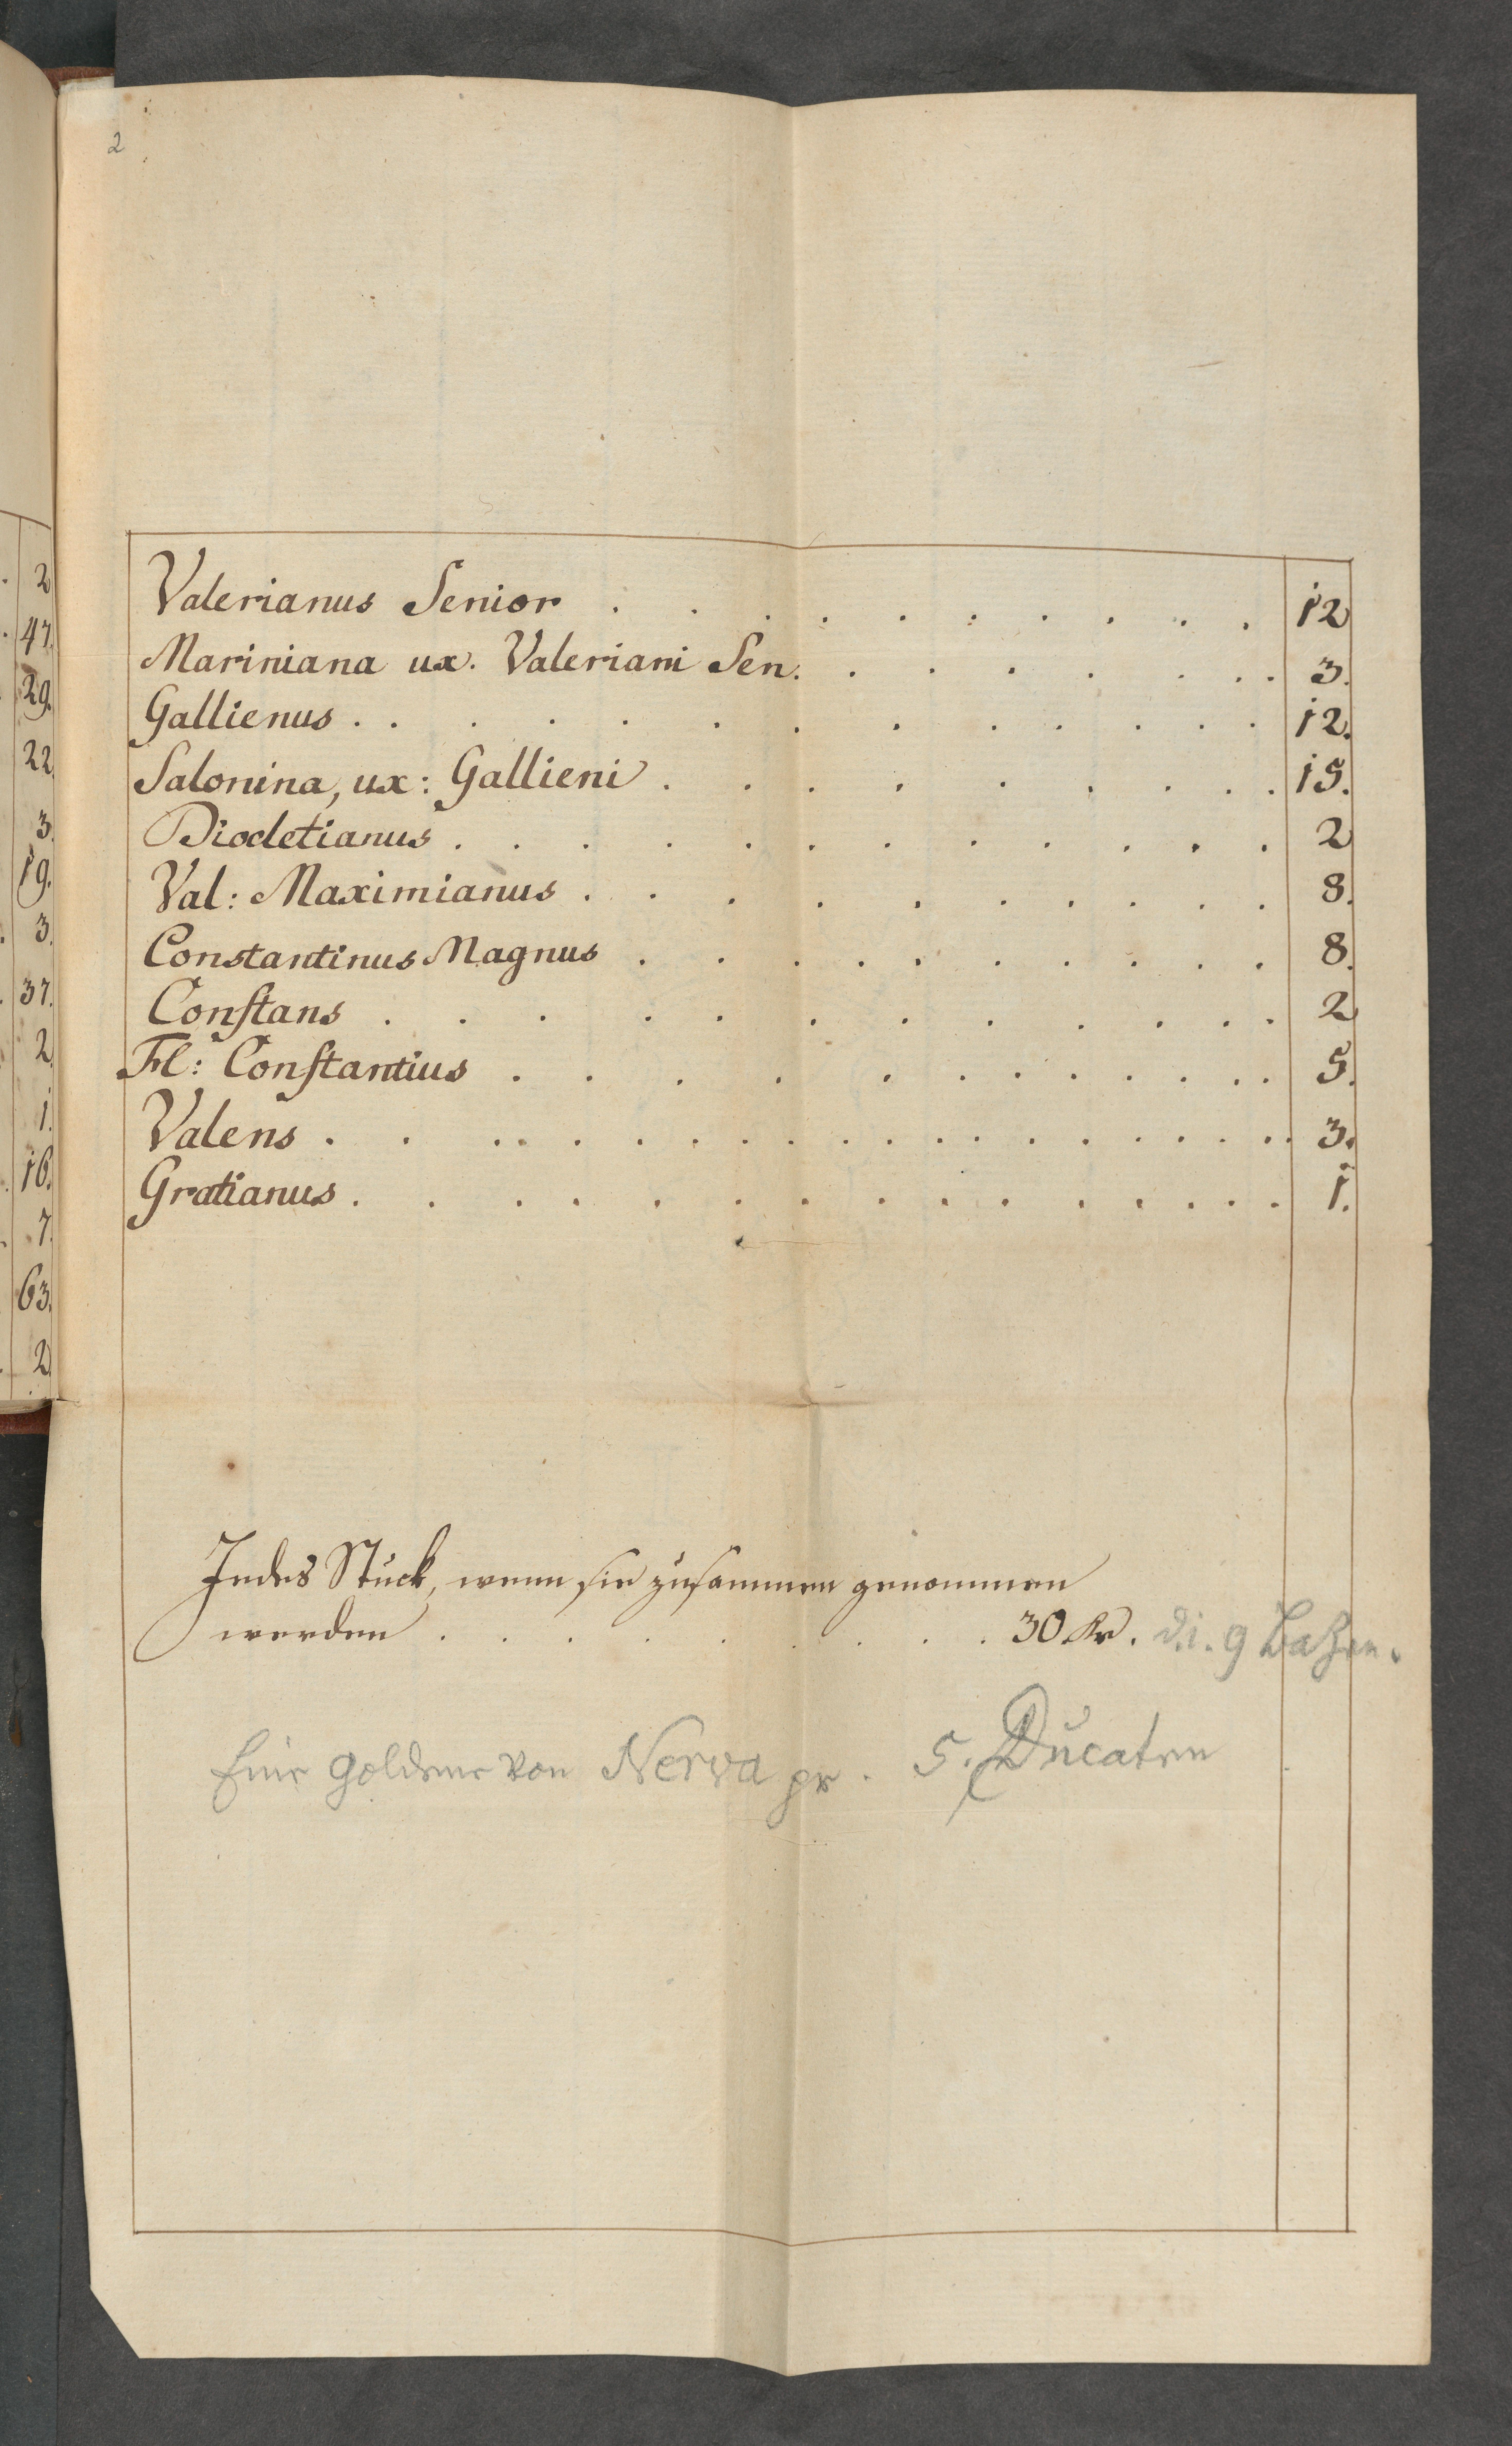 2
2
47.
29.
22
3.
19.
3.
37.
2
1.
16.
7.
63.
2
Valerianus Senior . . . . . . . . . . 12
Mariniana ux. Valeriani Sen. . . . . . . . . 3.
Gallienus . . . . . . . . . . . . . 12.
Salonina, ux: Gallieni . . . . . . . . . . 15.
Diocletianus . . . . . . . . . . . . . 2
Val: Maximianus . . . . . . . . . . 8.
Constantinus Magnus . . . . . . . . . . 8.
Constans . . . . . . . . . . . . . 2
Fl: Constantius . . . . . . . . . . . . 5.
Valens . . . . . . . . . . . . . . . . . . 3.
Gratianus . . . . . . . . . . . . . . . 1.
Jedes Stück, wenn sie zusammen genommen
werden . . . . . . . . . 30 Kr. d.i. 9 Bazen.
Eine goldene von Nerva pr. 5. Ducaten